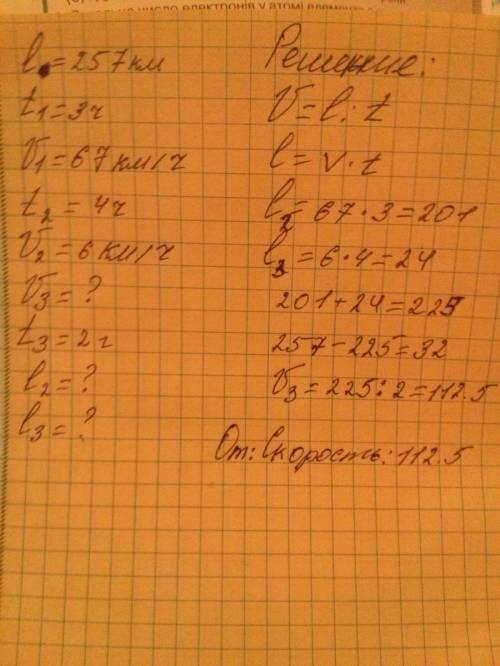 число електронів у атомі
l = 257 км
t₁ = 3ч
V₁ = 67 км/ч
t₂ = 4ч
V₂ = 6 км/ч
V₃ = ?
t₃ = 2ч
l₂ = ?
l₃ = ?
Решение:
V = l : t
l = v · t
l₂ = 67 · 3 = 201
l₃ = 6 · 4 = 24
201 + 24 = 225
257 - 225 = 32
V₃ = 225 : 2 = 112.5
От: Скорость: 112.5